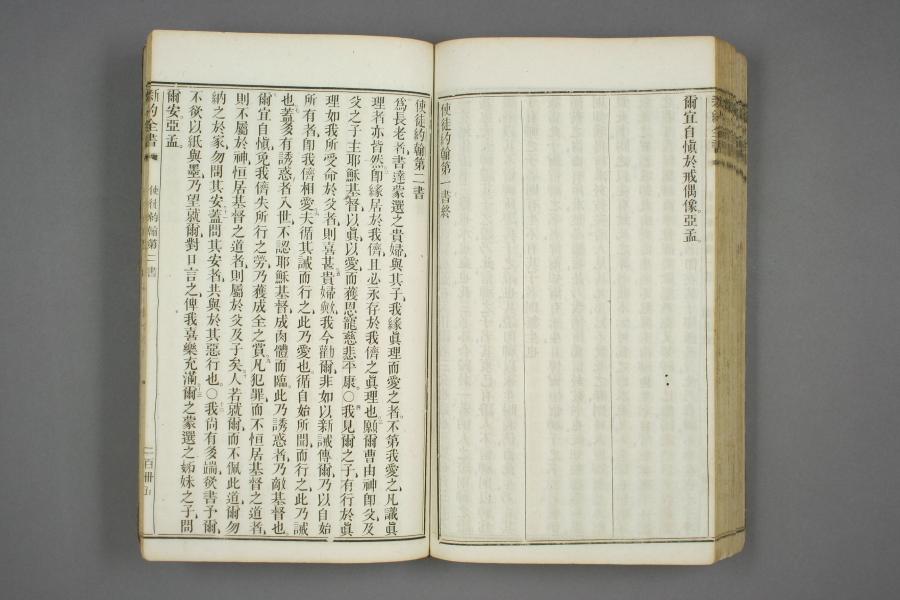 爾宜自愼於戒偶像亞孟
使徒約翰第一書終
使徒約翰第二書
爲長老者書達蒙選之貴婦與其子我緣眞理而愛之者不第我愛之凡識眞
理者亦皆然卽緣居於我儕且必永存於我儕之眞理也願爾曹由神卽父及
父之子主耶穌基督以眞以愛而獲恩寵慈悲平康〇我見爾之子有行於眞
理如我所受命於父者則喜甚貴婦歟我今勸爾非如以新誡傳爾乃以自始
所有者卽我儕相愛夫循其誡而行之此乃愛也循自始所聞而行之此乃誡
也蓋多有誘惑者入世不認耶穌基督成肉體而臨此乃誘惑者乃敵基督也
爾宜自愼免我儕失所行之勞乃獲成全之賞凡犯罪而不恒居基督之道者
則不屬於神恒居基督之道者則屬於父及子矣人若就爾而不佩此道爾勿
納之於家勿問其安蓋問其安者共與於其惡行也〇我尙有多端欲書予爾
不欲以紙與墨乃望就爾對口言之俾我喜樂充滿爾之蒙選之姊妹之子問
爾安亞孟
新約全書
使徒約翰第二書
二百卌五